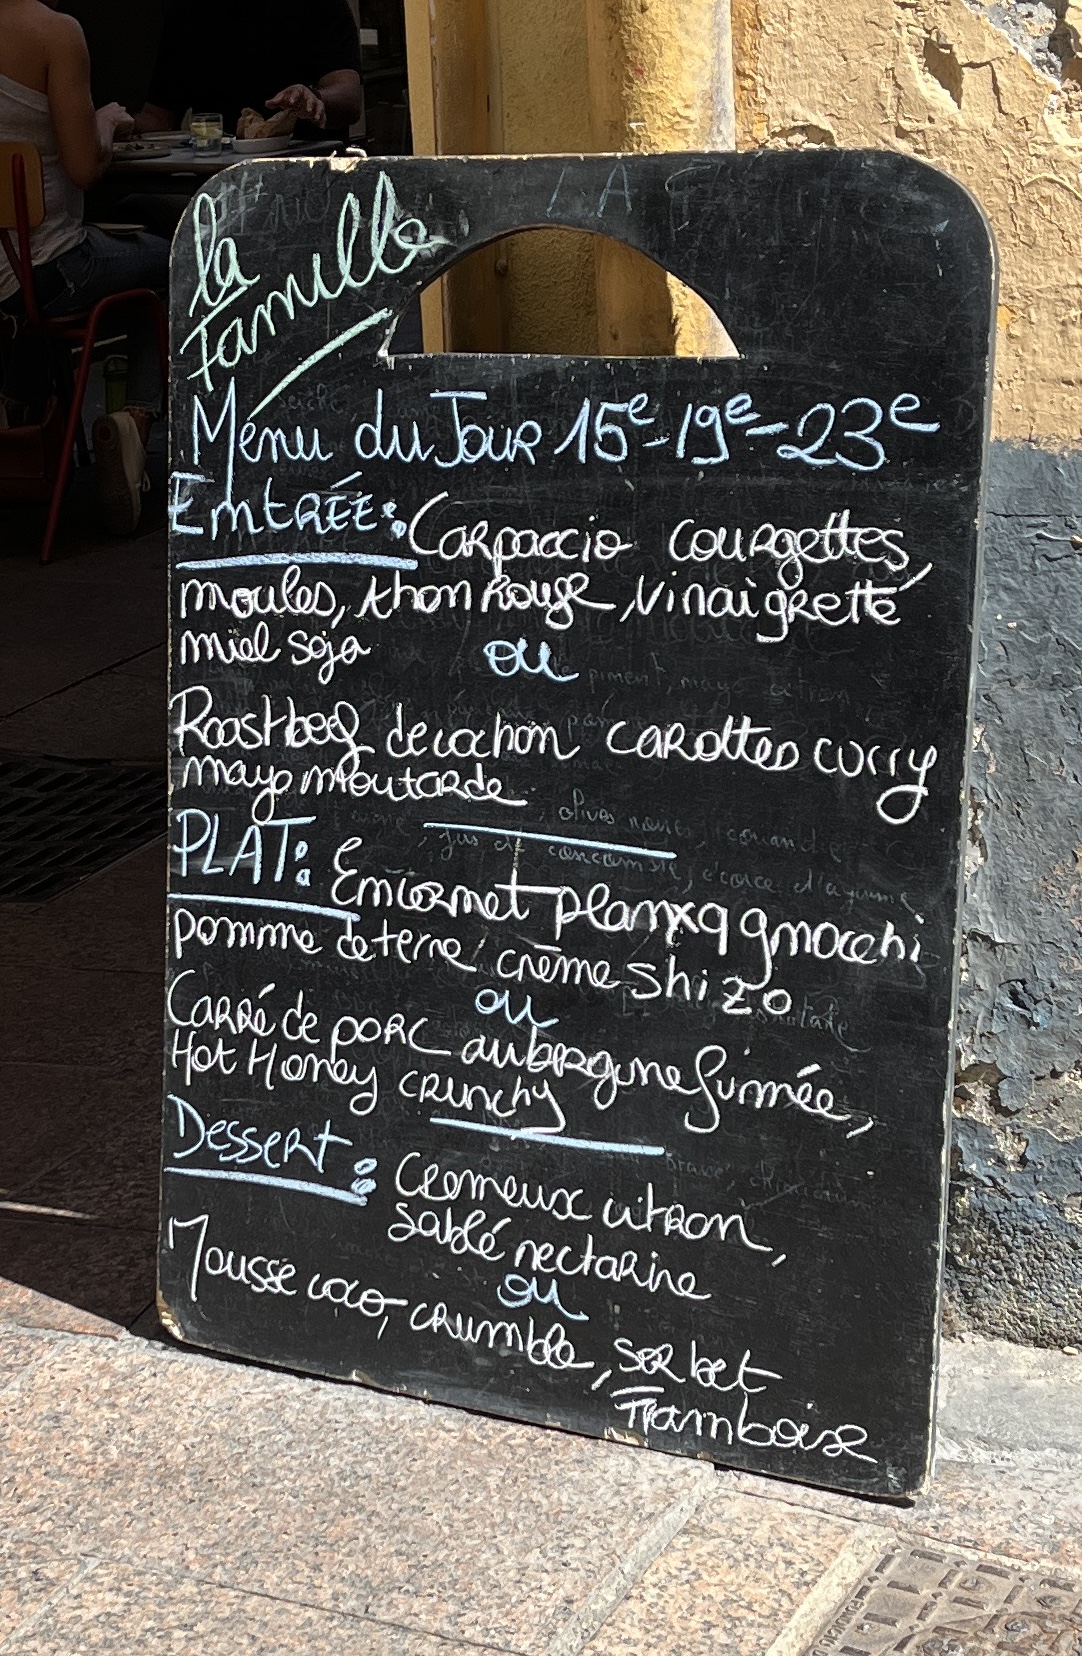 La
Famille
Menu du Jour 15e-19e-23e
Entrée: Carpaccio courgettes,
moules, thon Rouge, Vinaigrette
miel soja
ou
Roastbeef de cochon carottes curry
mayo moutarde
PLAT: Encornet planxa gnocchi
pomme de terre, crème shizo
ou
Carré de porc aubergine fumée,
Hot Honey crunchy
Dessert: Cremeux citron,
sablé nectarine
ou
Mousse coco, crumble, sorbet
Framboise